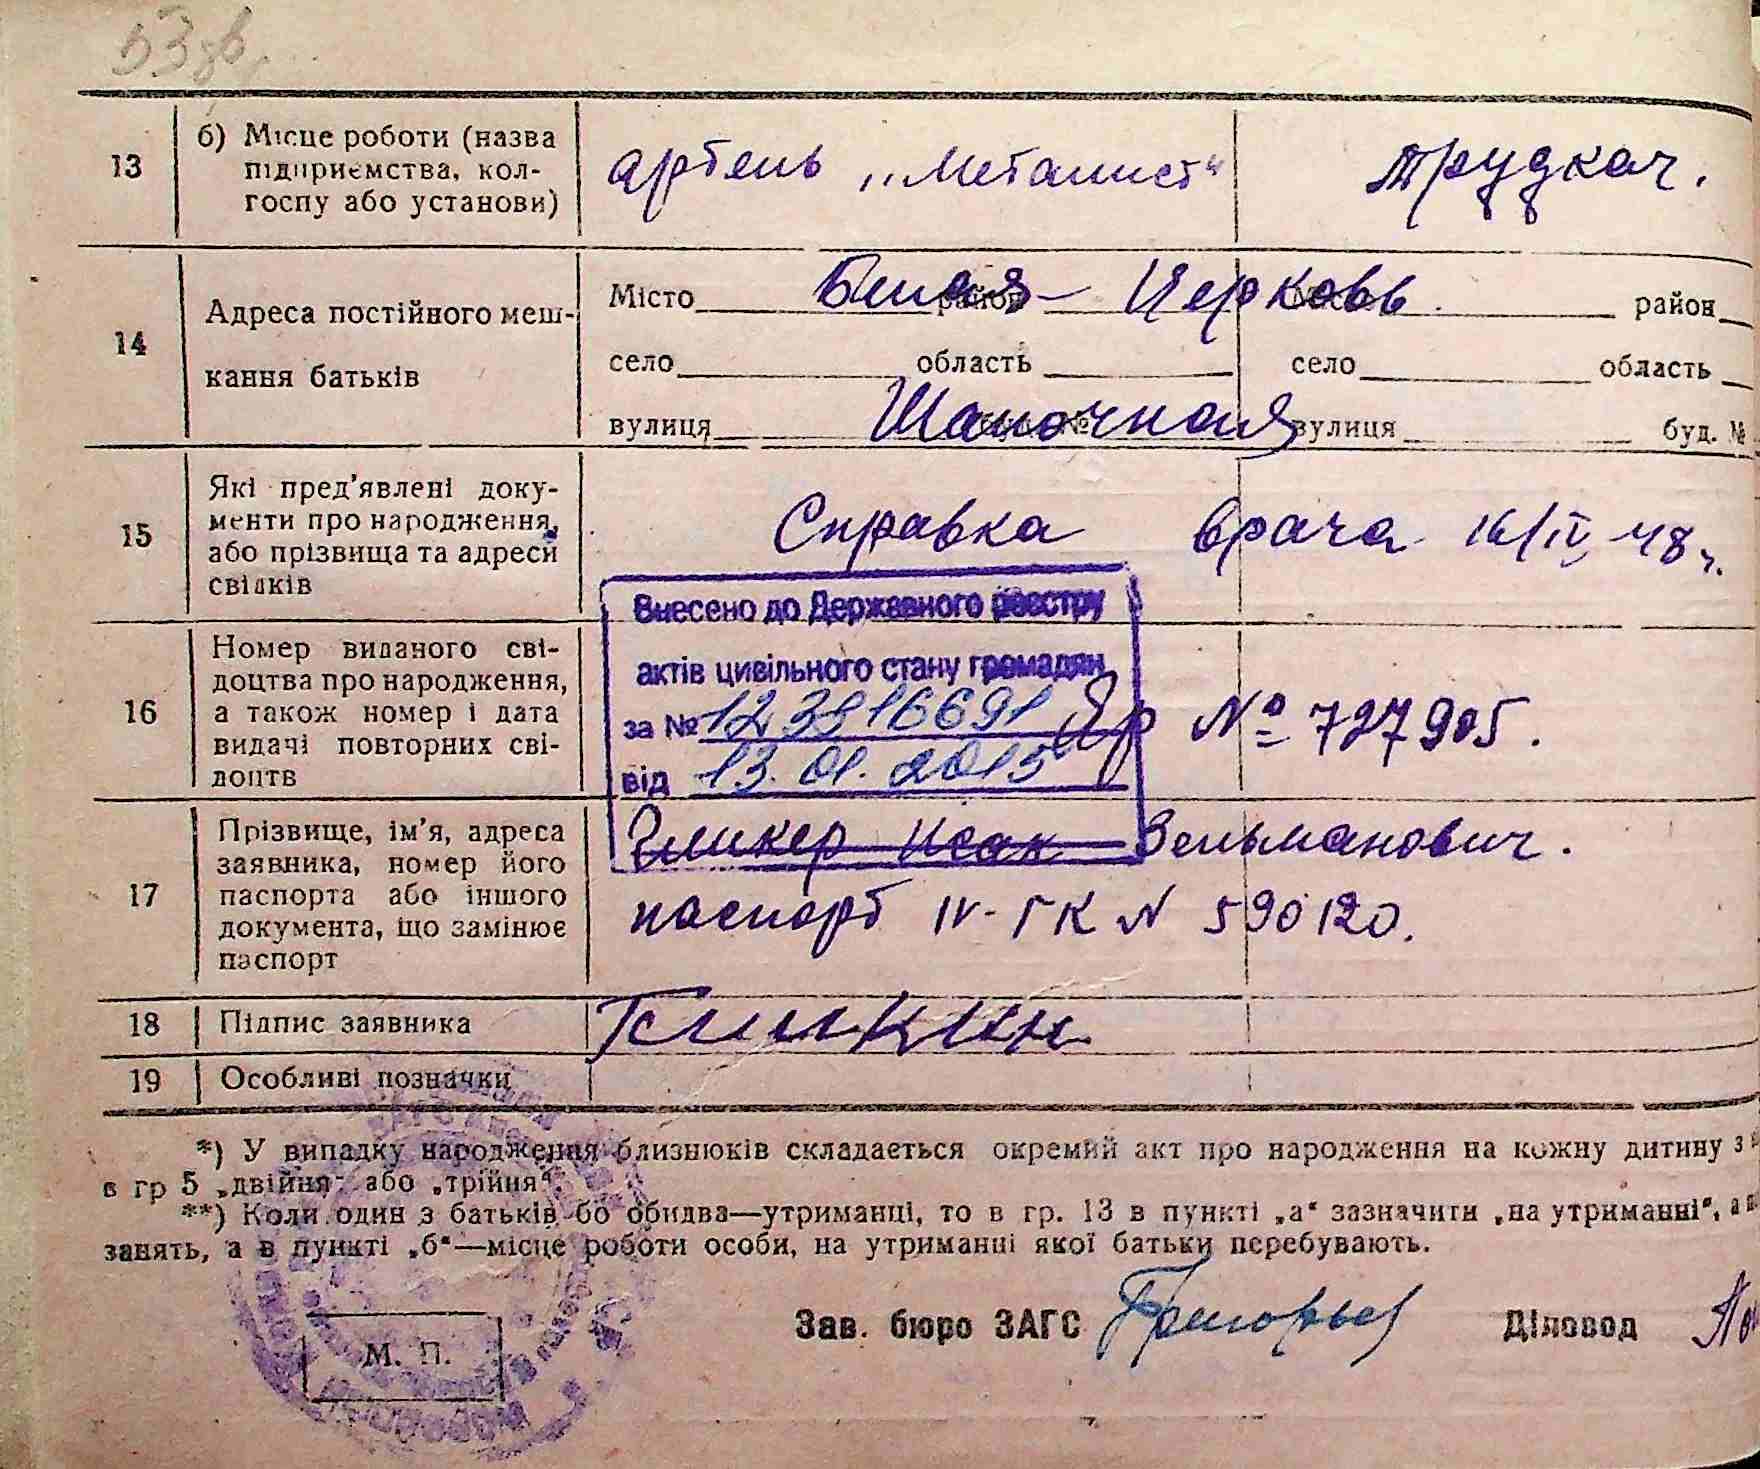 53
13
б) Місце роботи (назва
підприємства, кол-
госпу або установи)
артель „Металист“
Трудкач.
14
Адреса постійного меш-
кання батьків
Місто Белая- район Церковь Місто район
село область село область
вулиця Шапочная буд. № вулиця буд. №
15
Які пред'явлені доку-
менти про народження,
або прізвища та адреси
свідків
Справка врача 16/IV 48 г.
16
Номер виданого сві-
доцтва про народження,
а також номер і дата
видачі повторних сві-
доцтв
Внесено до Державного реєстру
актів цивільного стану громадян
за № 123816691
від 13.01.2015
Яр № 727905.
17
Прізвище, ім'я, адреса
заявника, номер його
паспорта або іншого
документа, що замінює
паспорт
Гликер Исак Зельманович.
паспорт IV-ГК N 590120.
18
Підпис заявника
19
Особливі позначки
*) У випадку народження близнюків складається окремий акт про народження на кожну дитину з
в гр 5 „двійня“ або „трійня“.
**) Коли один з батьків бо обидва—утриманці, то в гр. 13 в пункті „а“ зазначити „на утриманні“, а
занять, а в пункті „б“—місце роботи особи, на утриманні якої батьки перебувають.
Зав. бюро ЗАГС
Діловод
М. П.